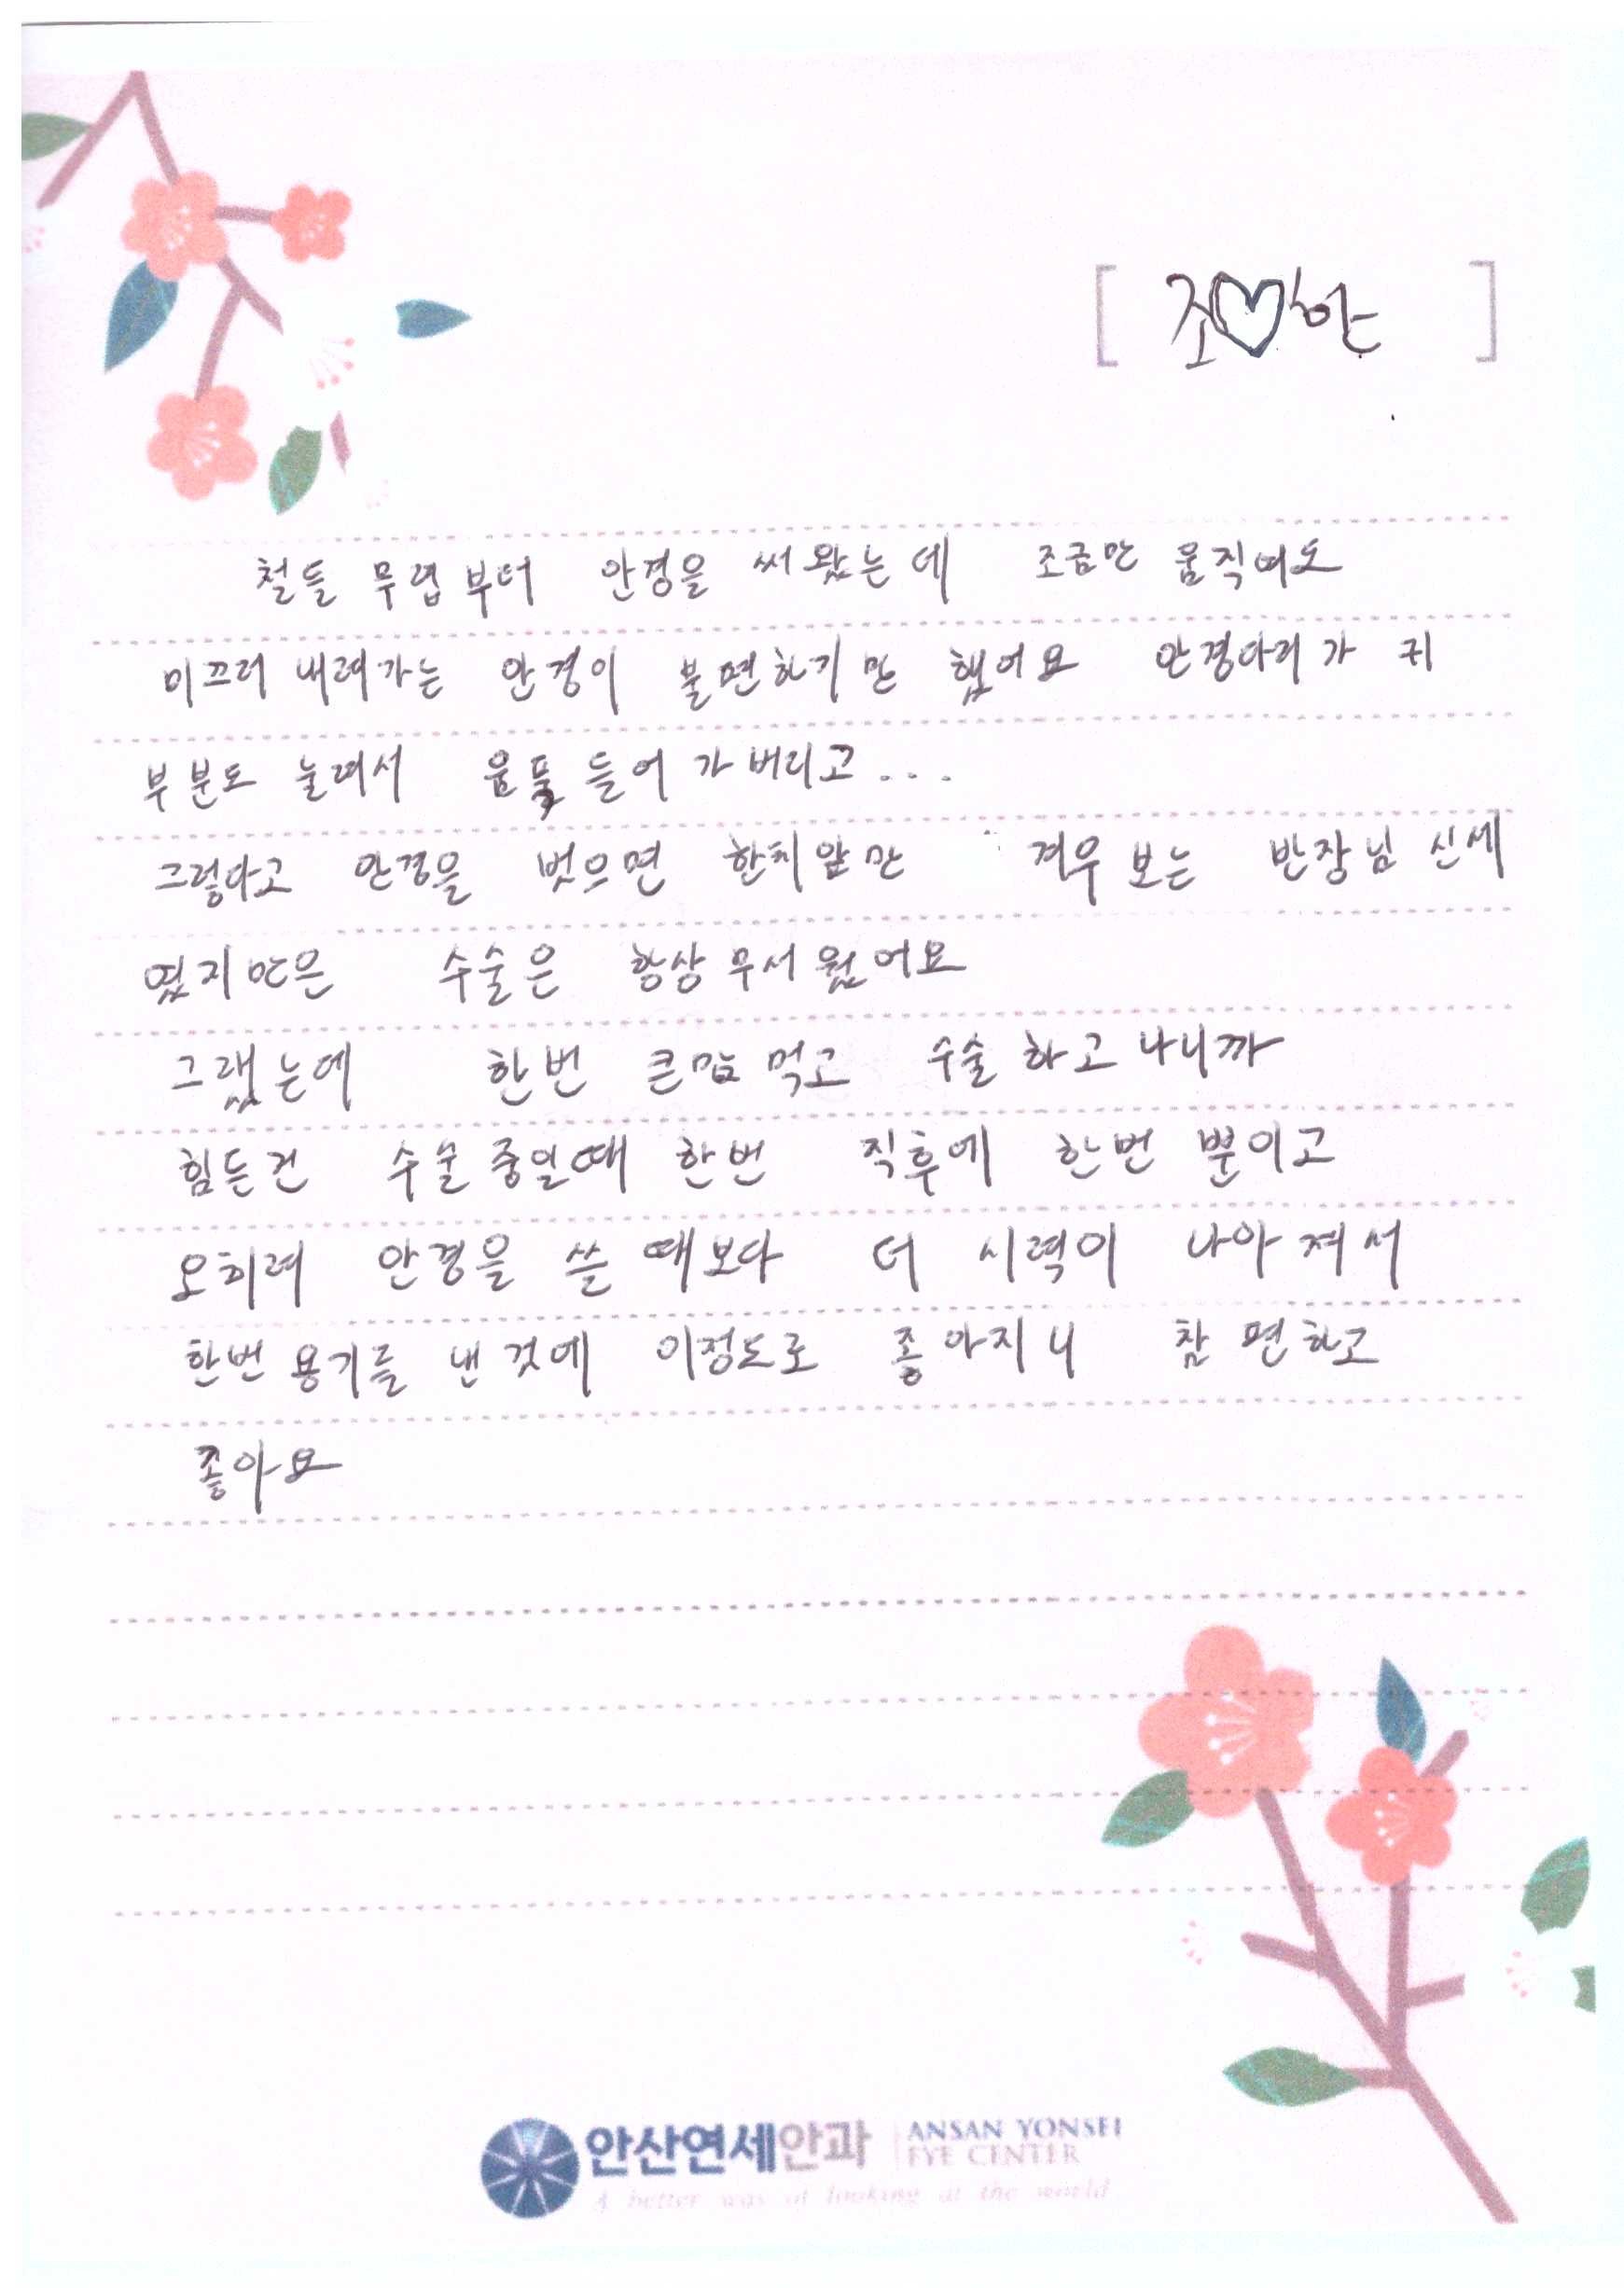 [ 조♡한 ]
철들 무렵부터 안경을 써왔는데 조금만 움직여도
미끄러 내려가는 안경이 불편하기만 했어요 안경다리가 귀
부분도 눌려서 움푹 들어가버리고...
그렇다고 안경을 벗으면 한치앞만 겨우 보는 반장님 신세
였지만은 수술은 항상 무서웠어요
그랬는데 한번 큰맘 먹고 수술 하고 나니까
힘든건 수술중일때 한번 직후에 한번 뿐이고
오히려 안경을 쓸 때보다 더 시력이 나아져서
한번 용기를 낸것에 이정도로 좋아지니 참 편하고
좋아요
안산연세안과 ANSAN YONSEI
EYE CENTER
A better way of looking at the world